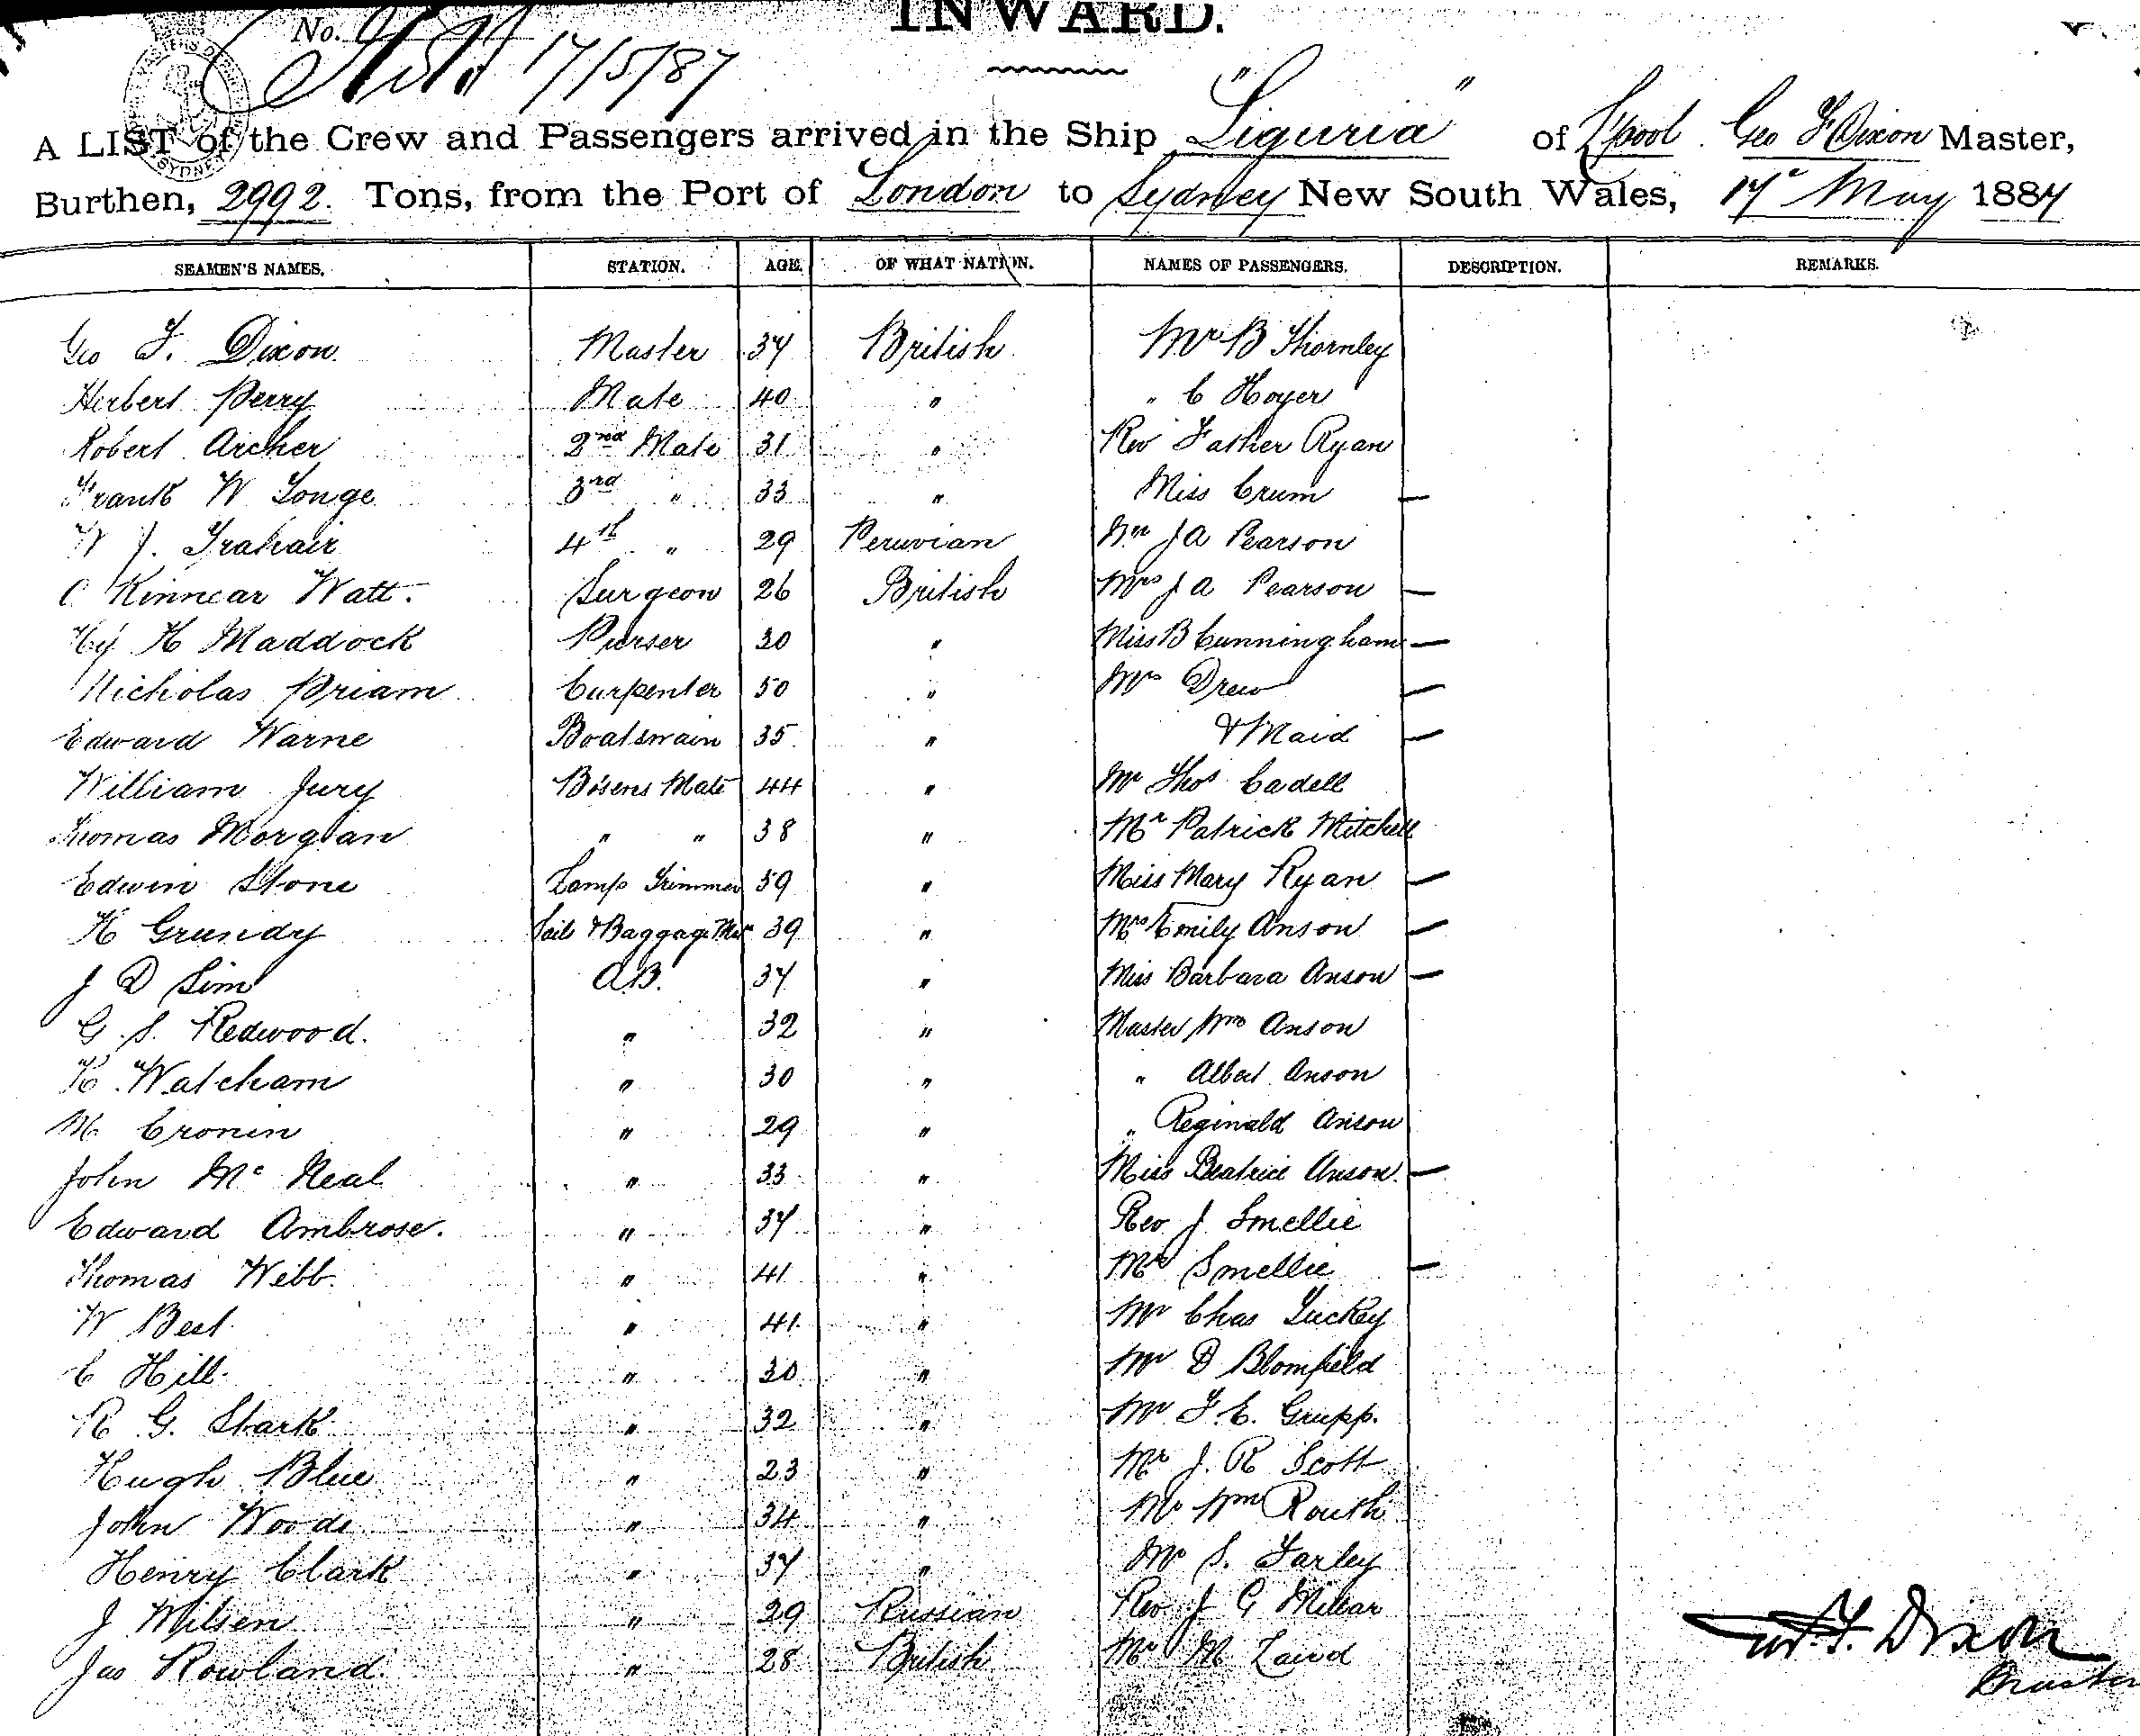 INWARD.
No.
17/5/87
A LIST of the Crew and Passengers arrived in the Ship "Liguria" of L'pool Geo F Dixon Master,
Burthen, 2992. Tons, from the Port of London to Sydney New South Wales, 17th May 1887
SEAMEN'S NAMES. STATION. AGE. OF WHAT NATION. NAMES OF PASSENGERS. DESCRIPTION. REMARKS.
Geo F. Dixon Master 37 British Mr B Thornley
Herbert Perry Mate 40 " " C Hoyer
Robert Archer 2nd Mate 31 " Rev Father Ryan
Frank W Longe 3rd " 33 " Miss Crum —
W J. Trahair 4th " 29 Peruvian Mr J A Pearson
C Kinnear Watt. Surgeon 26 British Mrs J A Pearson —
Hy H Maddock Purser 30 " Miss B Cunningham —
Nicholas Briam Carpenter 50 " Mrs Drew —
Edward Warne Boatswain 35 " & Maid —
William Jury Bosens Mate 44 " Mr Thos Cadell
Thomas Morgan " " 38 " Mr Patrick Mitchell
Edwin Stone Lamp Trimmer 59 " Miss Mary Ryan —
H Grundy Sail & Baggage Man 39 " Mrs Emily Anson —
J D Sim A.B. 37 " Miss Barbara Anson —
G. S. Redwood. " 32 " Master Wm Anson
H Watcham " 30 " " Albert Anson
M. Cronin " 29 " " Reginald Anson
John Mc Neal " 33 " Miss Beatrice Anson. —
Edward Ambrose. " 37 " Rev J Smellie
Thomas Webb. " 41 " Mrs Smellie —
W Best " 41 " Mr Chas Luckey
C Hill. " 30 " Mr D Blomfield
R G. Stark " 32 " Mr F. C. Grupp.
Hugh Blue " 23 " Mr J. R Scott
John Woods " 34 " Mr Wm Routh
Henry Clark " 37 " Mr S. Farley
J Wilsen " 29 Russian Rev J G Millar
Jas Rowland " 28 British Mr M Laird
F. Dixon
Master